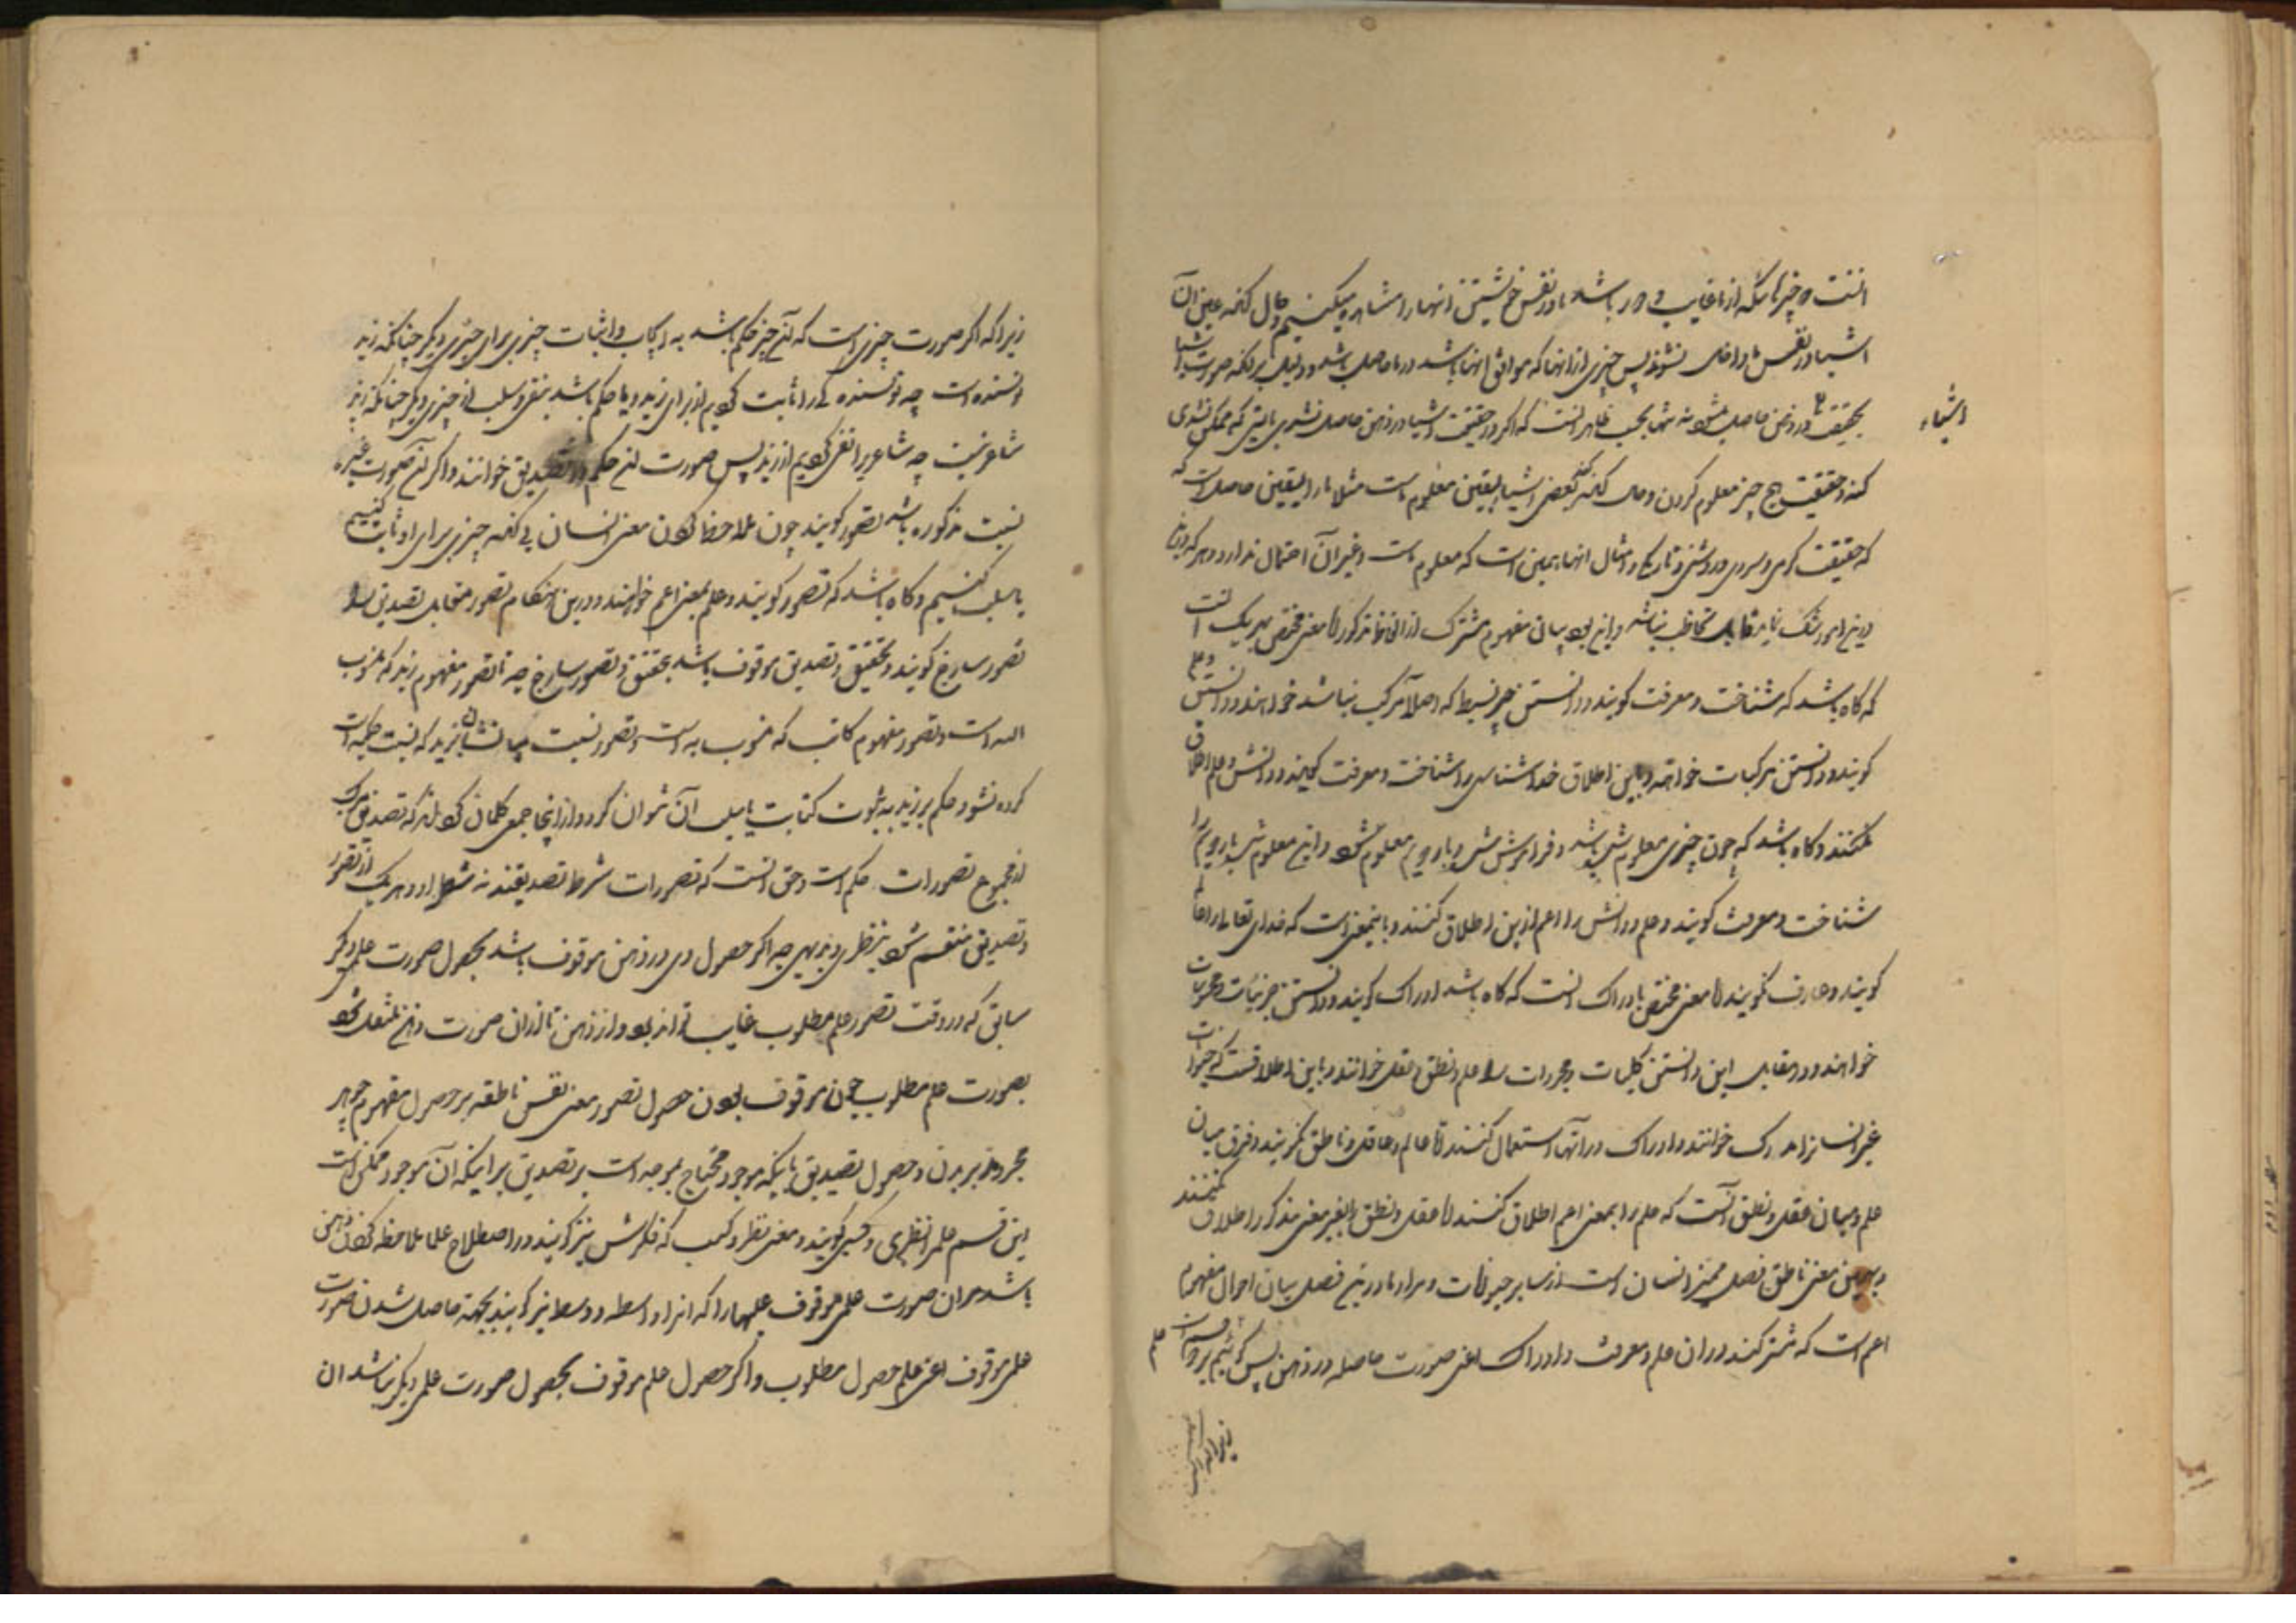 اشیا در نفس ما داخل نشوند پس چیزی از آنها که موافق آنها باشد در ما حاصل باشد و دلیل بر آنکه صورت اشیا
اشیاء
بحقیقت در ذهن حاصل میشود نه شبح ظاهر است که اگر حقیقت اشیا در ذهن حاصل نشدی بایستی که ممکن نشدی
کنه و حقیقت هیچ چیز معلوم کردن و حال آنکه کنه بعضی اشیا بیقین معلوم است مثلا ما را بیقین حاصل است که
که حقیقت گرمی و سردی و روشنی و تاریکی و امثال آنها همین است که معلوم است و غیر آن احتمال ندارد و هر که در این
درین امور شک نماید قابل تخاطب نباشد و این بود بیان مفهوم مشترک از الفاظ مذکور اما معنی مختص بهر یک آنست
که گاه باشد که شناخت و معرفت گویند و دانستن چیز بسیط که اصلا مرکب نباشد خواهند و دانستن و علم
گویند و دانستن مرکبات خواهند و باین اطلاق خداشناسی را شناخت و معرفت گویند و دانش و علم اطلاق
نکنند و گاه باشد که چون چیزی معلوم شده باشد و فراموش شود و بار دویم معلوم شود این معلوم شدن بار دویم را
شناخت و معرفت گویند و علم و دانش را اعم ازین اطلاق کنند و باینمعنی است که خدای تعالی را عالم
گویند و عارف نگویند اما معنی مختص بادراک آنست که گاه باشد ادراک گویند و دانستن جزئیات و محسوسات
خواهند و در مقابل این دانستن کلیات و مجردات را علم و نطق و تعقل خوانند و باین اطلاقست که حیوانات
غیر انسان را مدرک خوانند و ادراک در آنها استعمال کنند اما عالم و عاقل و ناطق نگویند و فرق میان
علم و میان عقل و نطق آنست که علم را بمعنی اعم اطلاق کنند اما عقل و نطق را بغیر معنی مذکور اطلاق نکنند
و بهمین معنی ناطق فصل ممیز انسان است از سایر حیوانات و مراد ما درین فصل بیان احوال مفهوم
اعم است که مشترکند در آن علم و معرفت و ادراک اعنی صورت حاصله در ذهن پس گوئیم بر دو قسم است علم
زیرا که اگر
زیرا که اگر صورت چیزی است که آن چیز حکم باشد به ایجاب و اثبات چیزی برای چیزی دیگر چنانکه زید
نویسنده است چه نویسنده را ثابت کردیم از برای زید و یا حکم باشد بنفی و سلب از چیزی دیگر چنانکه زید
شاعر نیست چه شاعری را نفی کردیم از زید پس صورت این حکم را تصدیق خوانند و اگر آن صورت غیر
نسبت مذکوره باشد تصور گویند چون ملاحظه کردن معنی انسان بی آنکه چیزی برای او ثابت کنیم
یا سلب کنیم و گاه باشد که تصور گویند و علم بمعنی اعم خواهند و درین هنگام تصور مقابل تصدیق را
تصور ساذج گویند و تحقیق تصدیق موقوف باشد بتحقق تصور ساذج چه تا تصور مفهوم زید که منسوب
الیه است و تصور مفهوم کاتب که منسوب به است و تصور نسبت میانشان که نسبت حکمیه است
کرده نشود حکم بر زید به ثبوت کتابت یا سلب آن نتوان کرد و از اینجا جمعی گمان کرده‌اند که تصدیق مرکب
از مجموع تصورات و حکم است و حق آنست که تصورات شرط تصدیقند نه شطر او و هر یک از تصور
و تصدیق منقسم شود بنظری و بدیهی چه اگر حصول وی در ذهن موقوف باشد بحصول صورت علمی دیگر
سابق که در وقت تصور علم مطلوب غایب تواند بود و از ذهن تا از آن صورت ذهن منتقل شود
بصورت علم مطلوب چون موقوف بودن حصول تصور معنی نفس ناطقه بر حصول مفهوم جوهر
مجرد مدبر بدن و حصول تصدیق باینکه موجود محتاج بموجد است بر تصدیق بر اینکه آن موجود ممکن است
این قسم علم را نظری و کسبی گویند و معنی نظر و کسب که فکرش نیز گویند در اصطلاح علما ملاحظه کردن ذهن
باشد مر آن صورت علمی موقوف علیها را که آنرا واسطه و وسط نیز گویند بجهة حاصل شدن صورت
علمی موقوف اعنی علم حصول مطلوب و اگر حصول علم موقوف بحصول صورت علمی دیگر نباشد آن